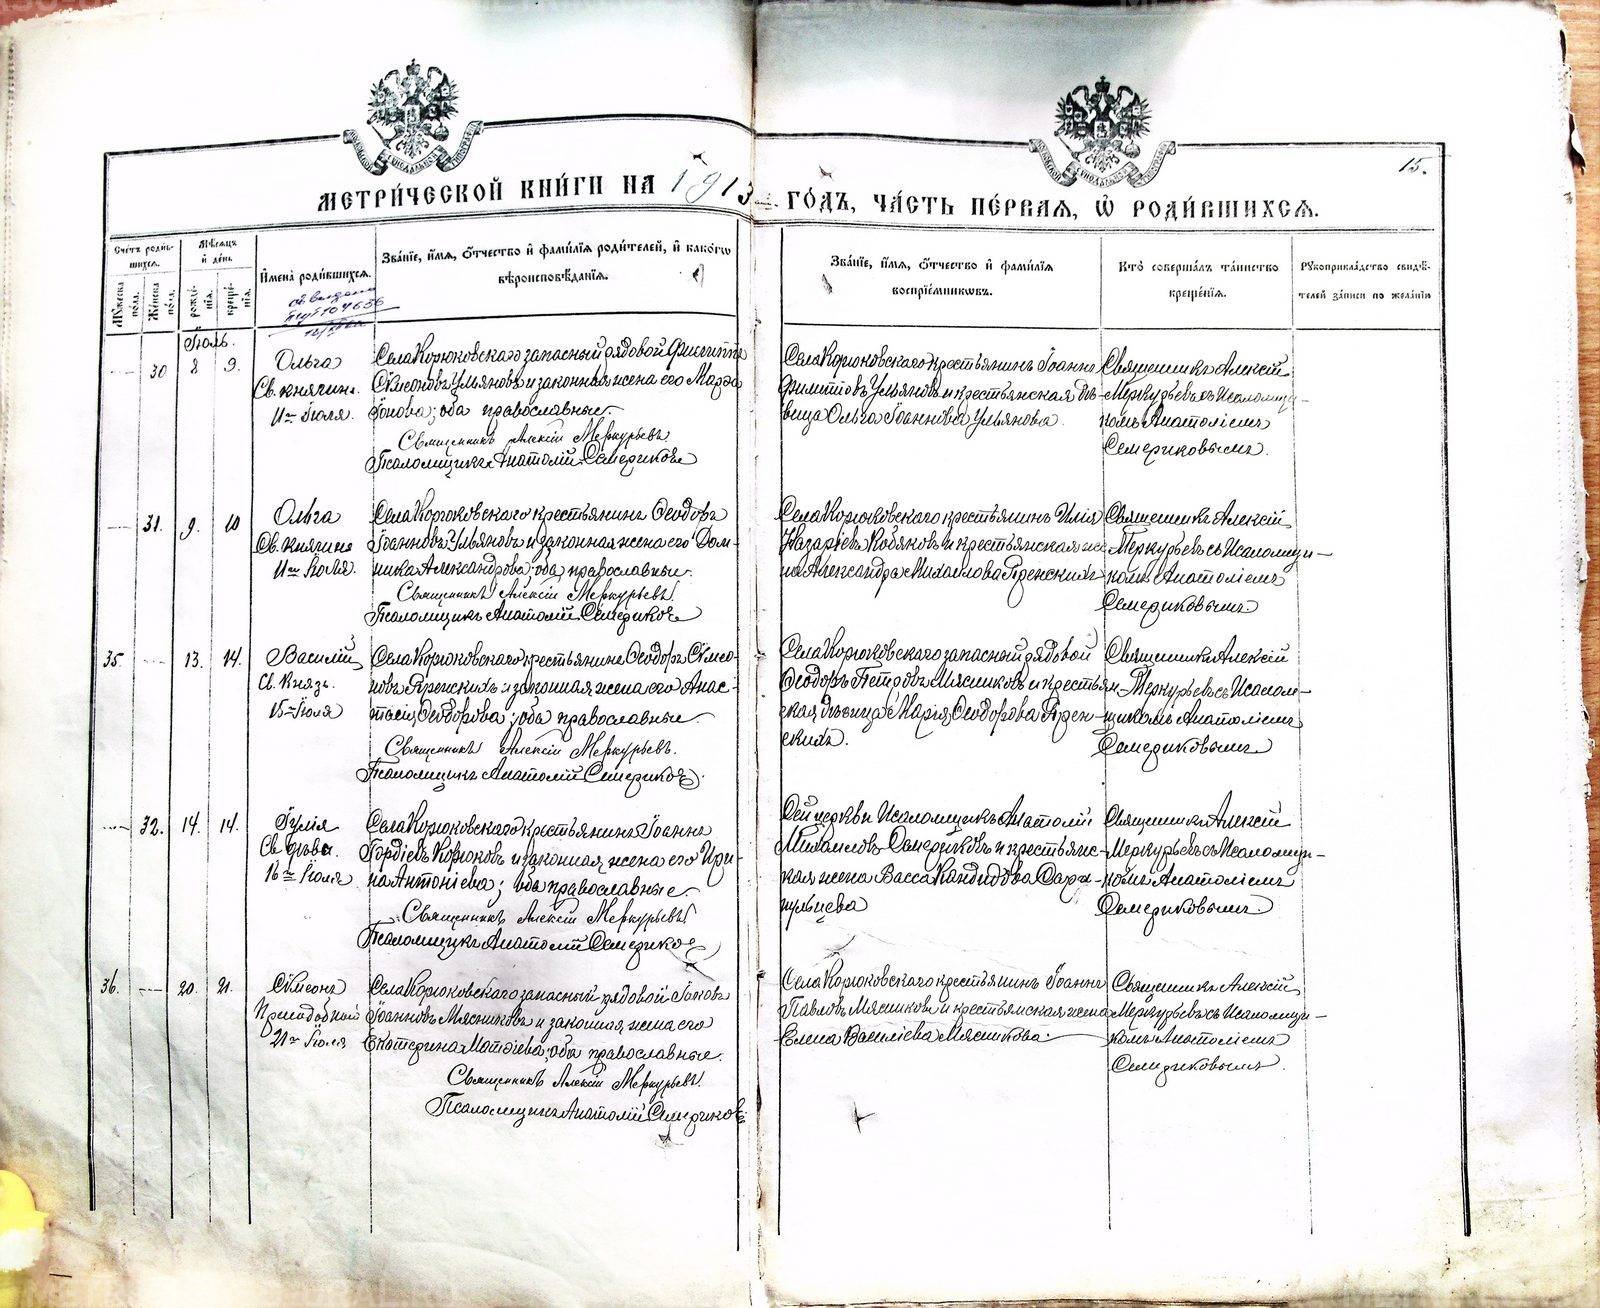 15.
МЕТРИ́ЧЕСКОЙ КНИ́ГИ НА 1913 ГО́ДЪ, ЧА́СТЬ ПЕ́РВАЯ, Ѡ РОДИ́ВШИХСЯ.
Сче́тъ роди́вшихся.
Му́жеска пола.
Же́нска пола.
Мѣ́сяцъ и де́нь.
рожде́нія.
креще́нія.
Имена̀ роди́вшихся.
Зва́ніе, и́мя, о́тчество и фами́лія роди́телей, и како́гѡ
вѣроисповѣ́данія.
Зва́ніе, и́мя, о́тчество и фами́лія
воспріе́мникѡвъ.
Кто̀ соверша́лъ та́инство
креще́нія.
Рукоприкла́дство свидѣ́-
телей за́писи по жела́нію
Іюль.
30 8 9.
Ольга
Св. княгин.
11го Іюля.
Села Корюковскаго запасный рядовой Филиппъ
Сѵмеоновъ Ульяновъ и законная жена его Марѳа
Іовова; оба православные.
Священникъ Алексій Меркурьевъ
Псаломщикъ Анатолій Семериковъ
Села Корюковскаго крестьянинъ Іоаннъ
Филипповъ Ульяновъ и крестьянская дѣ-
вица Ольга Іоаннова Ульянова.
Священникъ Алексій
Меркурьевъ съ Псаломщи-
комъ Анатоліемъ
Семериковымъ.
31. 9. 10
Ольга
Св. княгиня
11го Іюля.
Села Корюковскаго крестьянинъ Ѳеодоръ
Іоанновъ Ульяновъ и законная жена его Дом-
ника Александрова; оба православные.
Священникъ Алексій Меркурьевъ
Псаломщикъ Анатолій Семериковъ
Села Корюковскаго крестьянинъ Илія
Назаріевъ Кобяковъ и крестьянская же-
на Александра Михаилова Яренскихъ
Священникъ Алексій
Меркурьевъ съ Псаломщи-
комъ Анатоліемъ
Семериковымъ.
35. 13. 14.
Василій
Св. Князь.
15го Іюля
Села Корюковскаго крестьянинъ Ѳеодоръ Сѵмео-
новъ Яренскихъ и законная жена его Анас-
тасія Ѳеодорова; оба православные
Священникъ Алексій Меркурьевъ.
Псаломщикъ Анатолій Семериковъ.
Села Корюковскаго запасный рядовой
Ѳеодоръ Петровъ Мясниковъ и крестьян-
ская дѣвица Марія Ѳеодорова Ярен-
скихъ.
Священникъ Алексій
Меркурьевъ съ Псалом-
щикомъ Анатоліемъ
Семериковымъ
32. 14. 14.
Іулія
Св. дѣва.
16го Іюля
Села Корюковскаго крестьянинъ Іоаннъ
Гордіевъ Корюковъ и законная жена его Ири-
на Антоніева; оба православные
Священникъ Алексій Меркурьевъ
Псаломщикъ Анатолій Семериковъ
Сей церкви Псаломщикъ Анатолій
Михаиловъ Семериковъ и крестьянс-
кая жена Васса Кандидова Сара-
пульцева
Священникъ Алексій
Меркурьевъ съ Псаломщи-
комъ Анатоліемъ
Семериковымъ.
36. 20. 21.
Сѵмеонъ
Преподобный
21го Іюля
Села Корюковскаго запасный рядовой Іаковъ
Іоанновъ Мясниковъ и законная жена его
Екатерина Матѳіева; оба православные.
Священникъ Алексій Меркурьевъ.
Псаломщикъ Анатолій Семериковъ
Села Корюковскаго крестьянинъ Іоаннъ
Павловъ Мясниковъ и крестьянская жена
Елена Василіева Мясникова.
Священникъ Алексій
Меркурьевъ съ Псаломщи-
комъ Анатоліемъ
Семериковымъ.